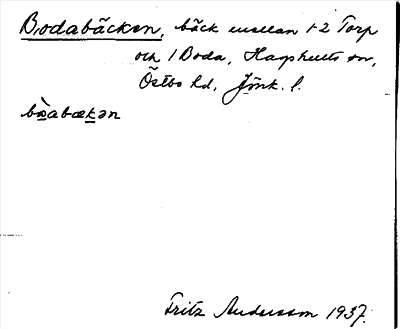 Bodabäcken, bäck mellan 1-2 Torp
och 1 Boda, Hagshults sn,
Östbo hd, Jönk. l.
bὼabækən
Fritz Andersson 1937.